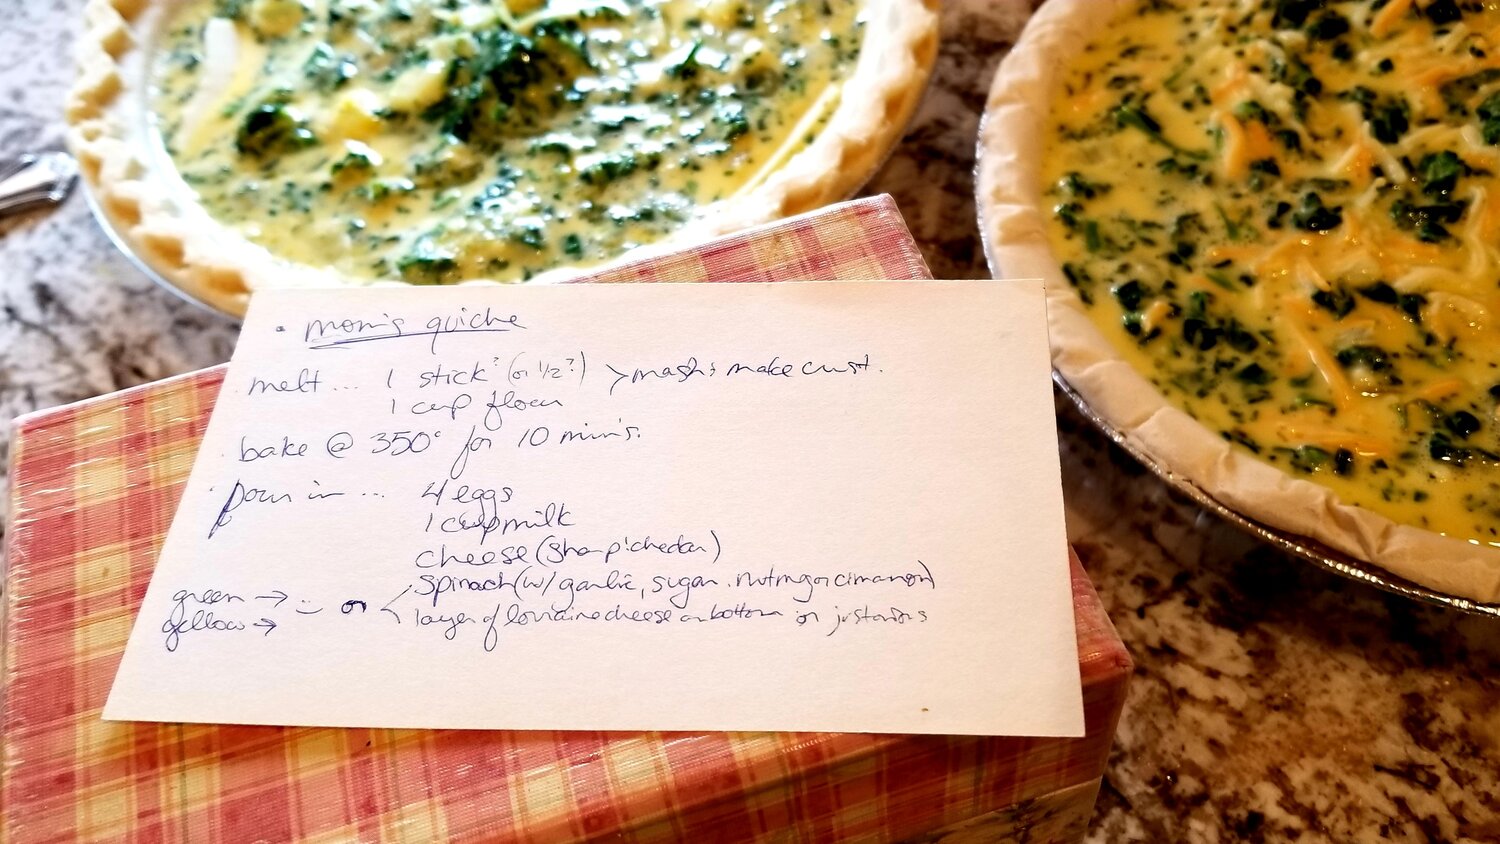 • mom's quiche
melt... 1 stick? (or 1/2?) > mash & make crust.
1 cup flour
bake @ 350° for 10 min's.
pour in ... 4 eggs
1 cup milk
cheese (sharp! chedar)
green → spinach (w/ garlic, sugar. nutmg or cimanon)
yellow → or < layer of lorraine cheese on bottom or just